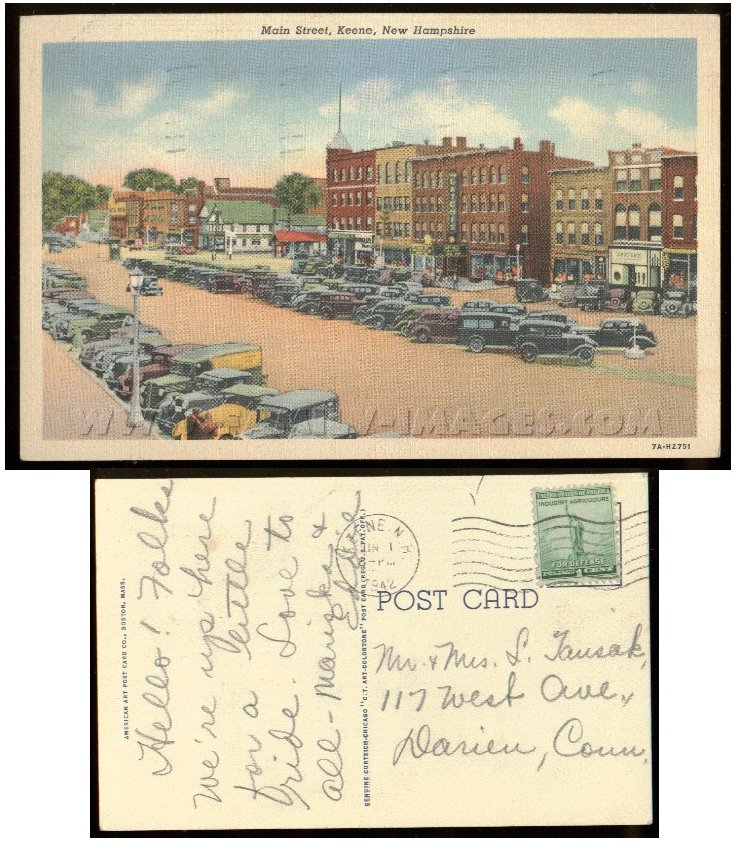 Main Street, Keene, New Hampshire
WWW.FAMILY-IMAGES.COM
7A-H2751
AMERICAN ART POST CARD CO., BOSTON, MASS.
Hello! Folks
We're up here
for a little
ride. Love to
all -
GENUINE CURTEICH-CHICAGO "C.T. ART-COLORTONE" POST CARD (REG. U.S. PAT. OFF.)
NE. N. H
1
PM
1942
UNITED STATES OF AMERICA
INDUSTRY AGRICULTURE
FOR DEFENSE
POSTAGE 1 CENT
POST CARD
Mr. & Mrs. S. Tansak,
117 West Ave.,
Darien, Conn.